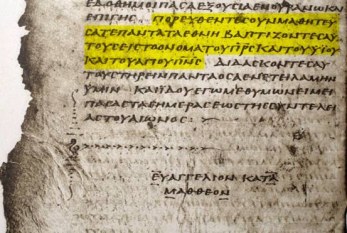 ΕΔΟΘΗΜΟΙΠΑϹΑΕΞΟΥϹΙΑΕΝΟΥΡΑΝΩΚΑΙ
ΕΠΙΓΗϹ ΠΟΡΕΥΘΕΝΤΕϹΟΥΝΜΑΘΗΤΕΥ
ϹΑΤΕΠΑΝΤΑΤΑΕΘΝΗ ΒΑΠΤΙΖΟΝΤΕϹΑΥ
ΤΟΥϹΕΙϹΤΟΟΝΟΜΑΤΟΥΠΡϹΚΑΙΤΟΥΥΙΟΥ
ΚΑΙΤΟΥΑΓΙΟΥΠΝϹ ΔΙΔΑϹΚΟΝΤΕϹΑΥ
ΤΟΥϹΤΗΡΕΙΝΠΑΝΤΑΟϹΑΕΝΕΤΙΛΑΜΗΝ
ΥΜΙΝ ΚΑΙΙΔΟΥΕΓΩΜΕΘΥΜΩΝΕΙΜΕΙ
ΠΑϹΑϹΤΑϹΗΜΕΡΑϹΕΩϹΤΗϹϹΥΝΤΕΛΕΙ
ΑϹΤΟΥΑΙΩΝΟϹ
ΕΥΑΓΓΕΛΙΟΝ ΚΑΤΑ
ΜΑΘΘΕΟΝ